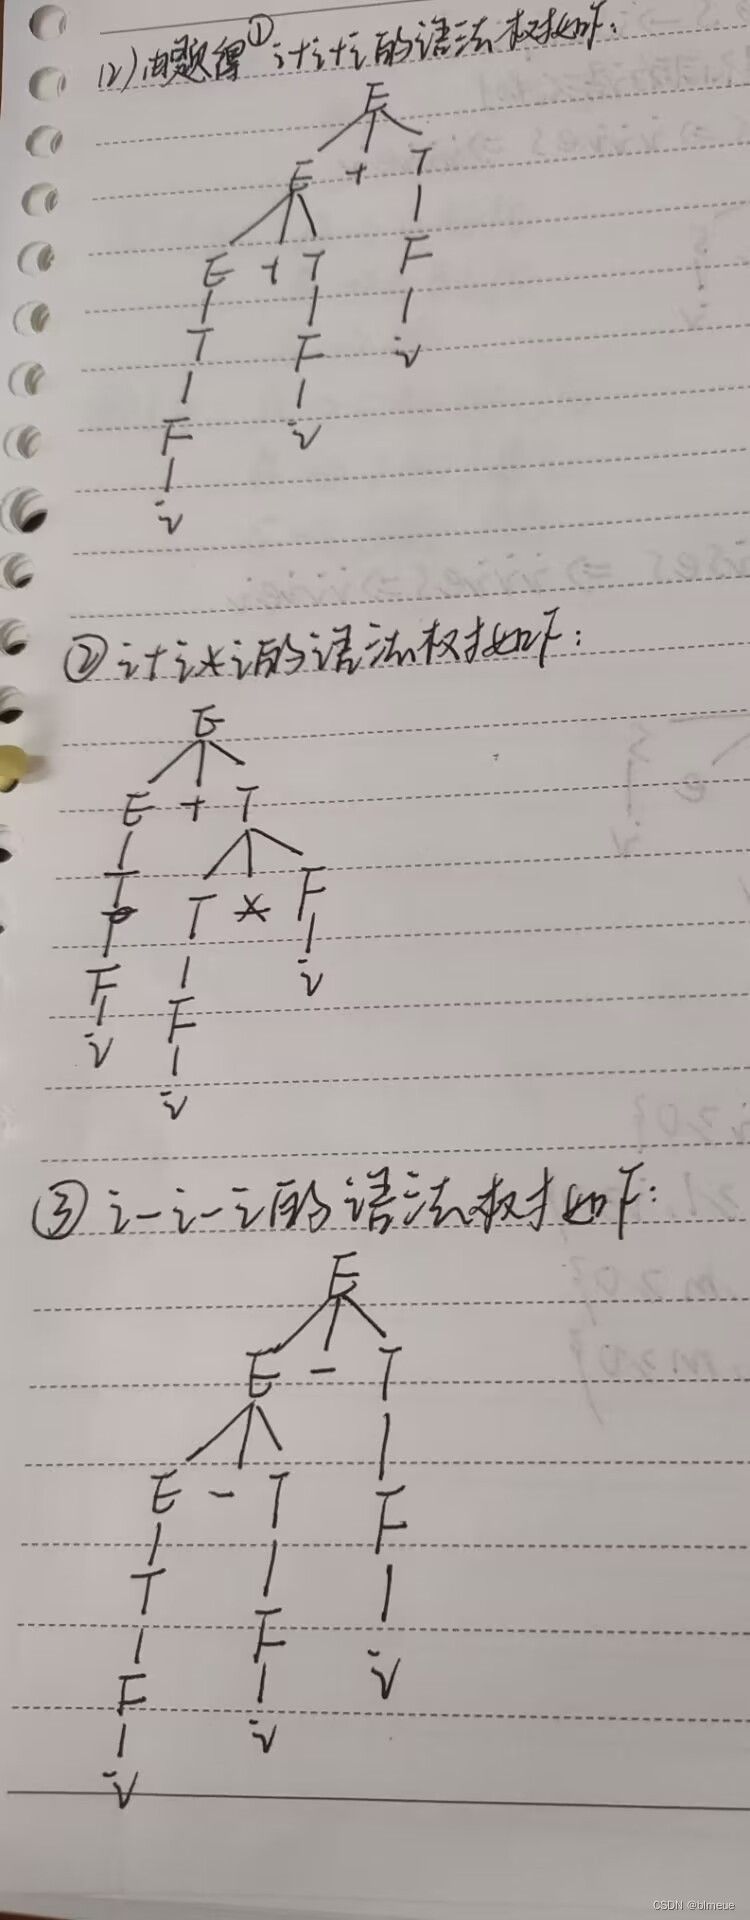 (2)由题得①i+i+i的语法树如下:
E
E + T
E + T F
T F i
F i
i
②i+i*i的语法树如下:
E
E + T
T T * F
F F i
i i
③i-i-i的语法树如下:
E
E - T
E - T F
T F i
F i
i
CSDN @blmeue